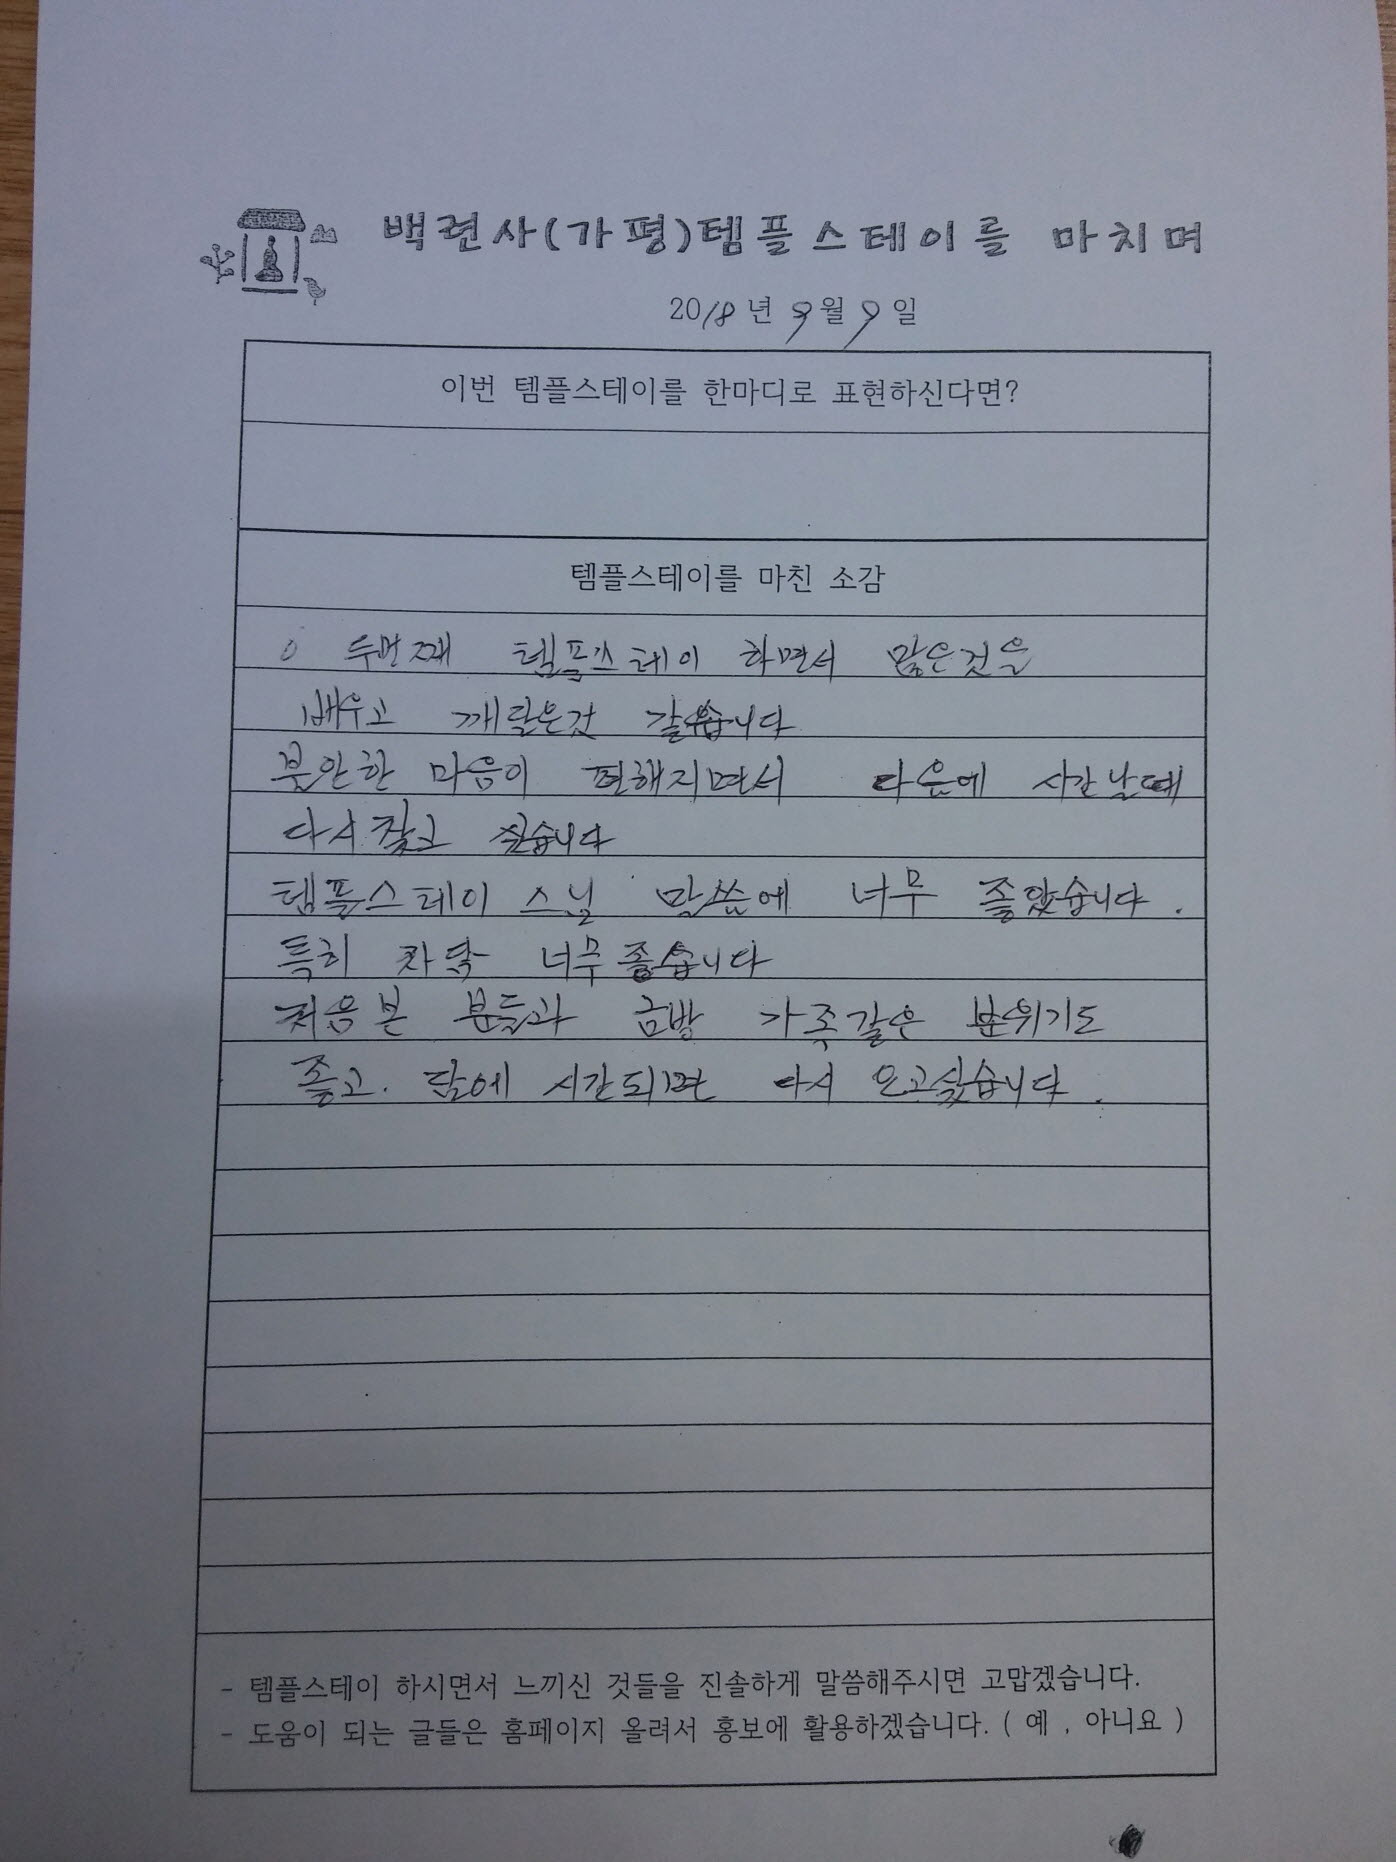 백련사(가평)템플스테이를 마치며
2018년 9월 9일
이번 템플스테이를 한마디로 표현하신다면?
템플스테이를 마친 소감
두번째 템플스테이 하면서 많은것을
배우고 깨달은것 같습니다
불안한 마음이 편해지면서 다음에 시간날때
다시찾고 싶습니다
템플스테이 스님 말씀에 너무 좋았습니다.
특히 차담 너무좋습니다
처음본 분들과 금방 가족같은 분위기도
좋고. 담에 시간되면 다시 오고싶습니다.
- 템플스테이 하시면서 느끼신 것들을 진솔하게 말씀해주시면 고맙겠습니다.
- 도움이 되는 글들은 홈페이지 올려서 홍보에 활용하겠습니다. ( 예 , 아니요 )